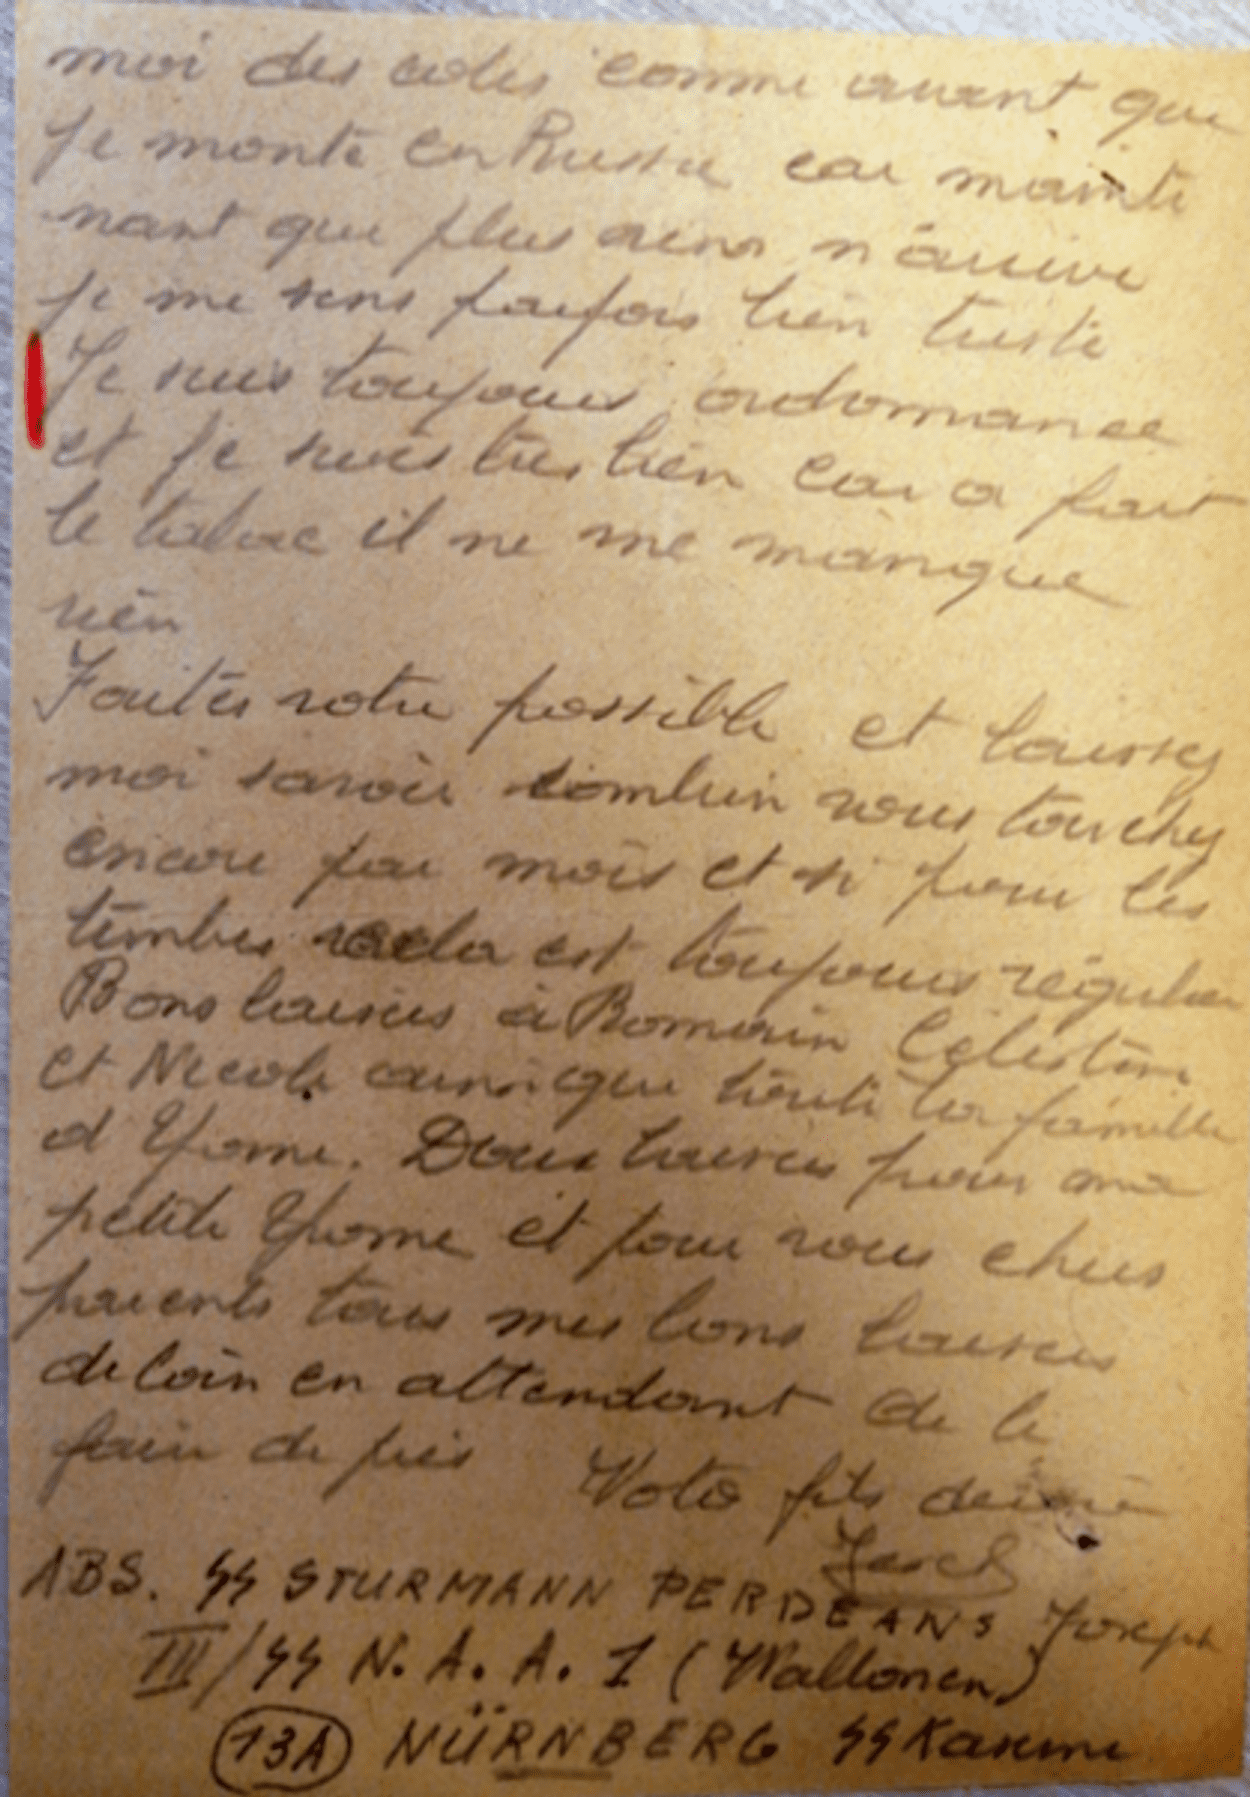 moi des colis comme avant que
je monte en Russie car mainte
nant que plus rien n'arrive
je me sens parfois bien triste
Je suis toujours ordonnance
et je suis très bien car a part
le tabac il ne me manque
rien
Faites votre possible et laissez
moi savoir combien vous touchez
encore par mois et si pour les
timbres cela est toujours régulier
Bons baisers à Romain Célestine
et Nicole ainsi que toute la famille
d Yvonne. Doux baisers pour ma
petite Yvonne et pour vous chers
parents tous mes bons baisers
de loin en attendant de le
faire de près Votre fils
ABS. SS STURMANN PERDEANS Joseph
III/SS N. A. A. 1 (Wallonen)
13A NÜRNBERG SS Kaserne